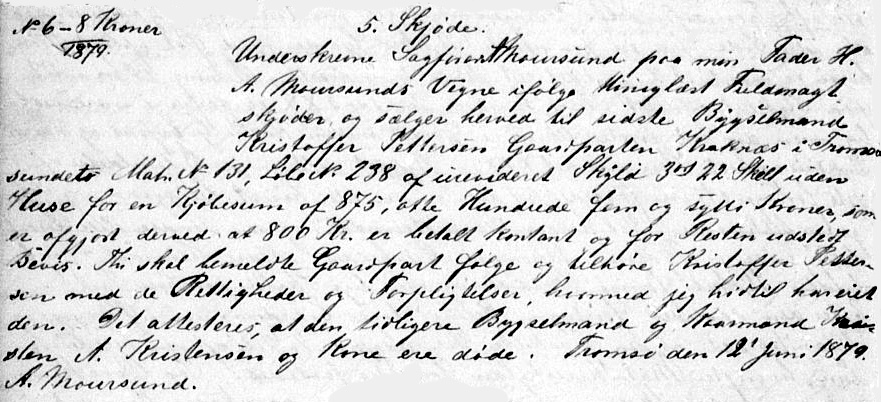 No 6 - 8 Kroner
1879.
5. Skjøde.
Underskrevne Sagfører Moursund paa min Fader H.
A. Moursunds Vegne ifølge thinglæst Fuldmagt
skjøder og sælger herved til sidste Bygselmand
Kristoffer Pettersen Gaardparten Kraknæs i Tromsø
sundets Matr. No 131, Løbeno 238 af urevideret Skyld 3 ort 22 Skill uden
Huse for en Kjøbesum af 875, otte Hundrede fem og sytti Kroner, som
er afgjort derved at 800 Kr. er betalt kontant og for Resten udstedt
Bevis. Thi skal bemeldte Gaardpart følge og tilhøre Kristoffer Petter-
sen med de Rettigheder og Forpligtelser, hvormed jeg hidtil har eiet
den. Det attesteres, at den tidligere Bygselmand og Kaarmand Kri-
sten A. Kristensen og Kone ere døde. Tromsø den 12' Juni 1879.
A. Moursund.